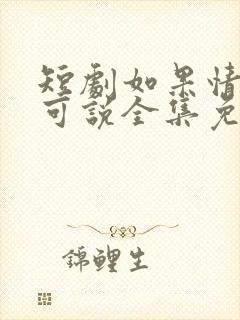 短劇如果情
可說全集免
錦鯉生